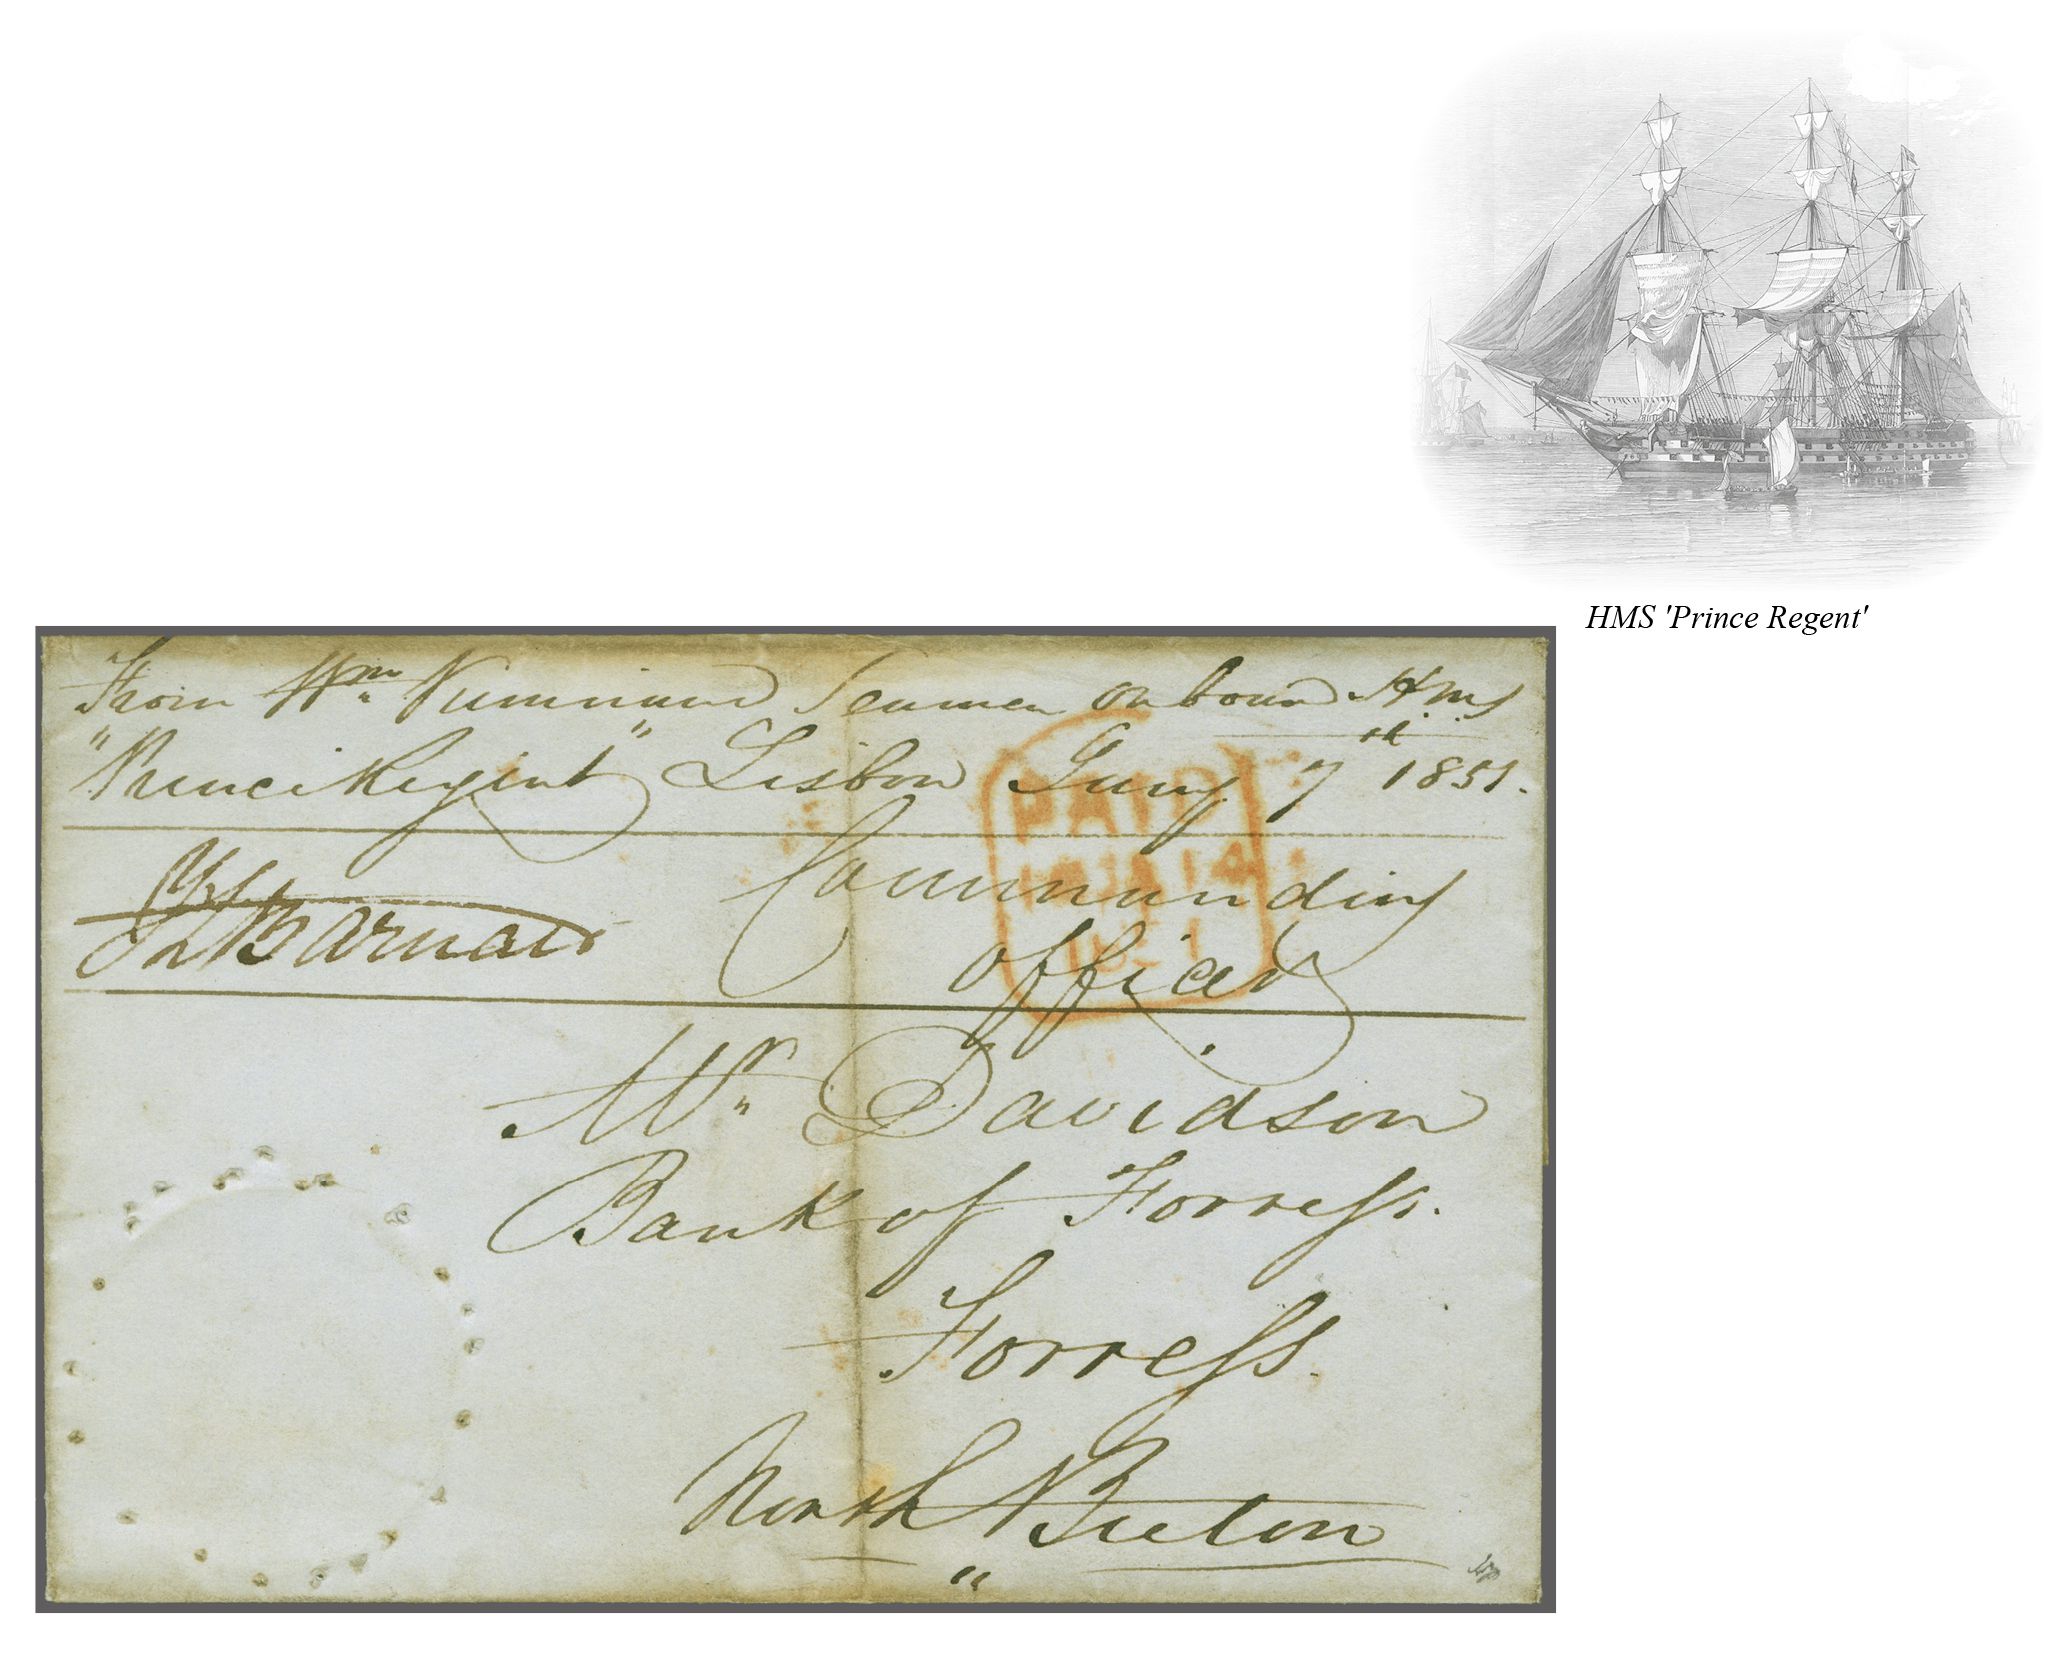 HMS 'Prince Regent'
From Wm Seaman on board HMS
"Prince Regent" Lisbon 7th 1851.
PAID
14
1851
Commanding
officer
Mr Davidson
Bank of Forress.
Forress.
North Briton